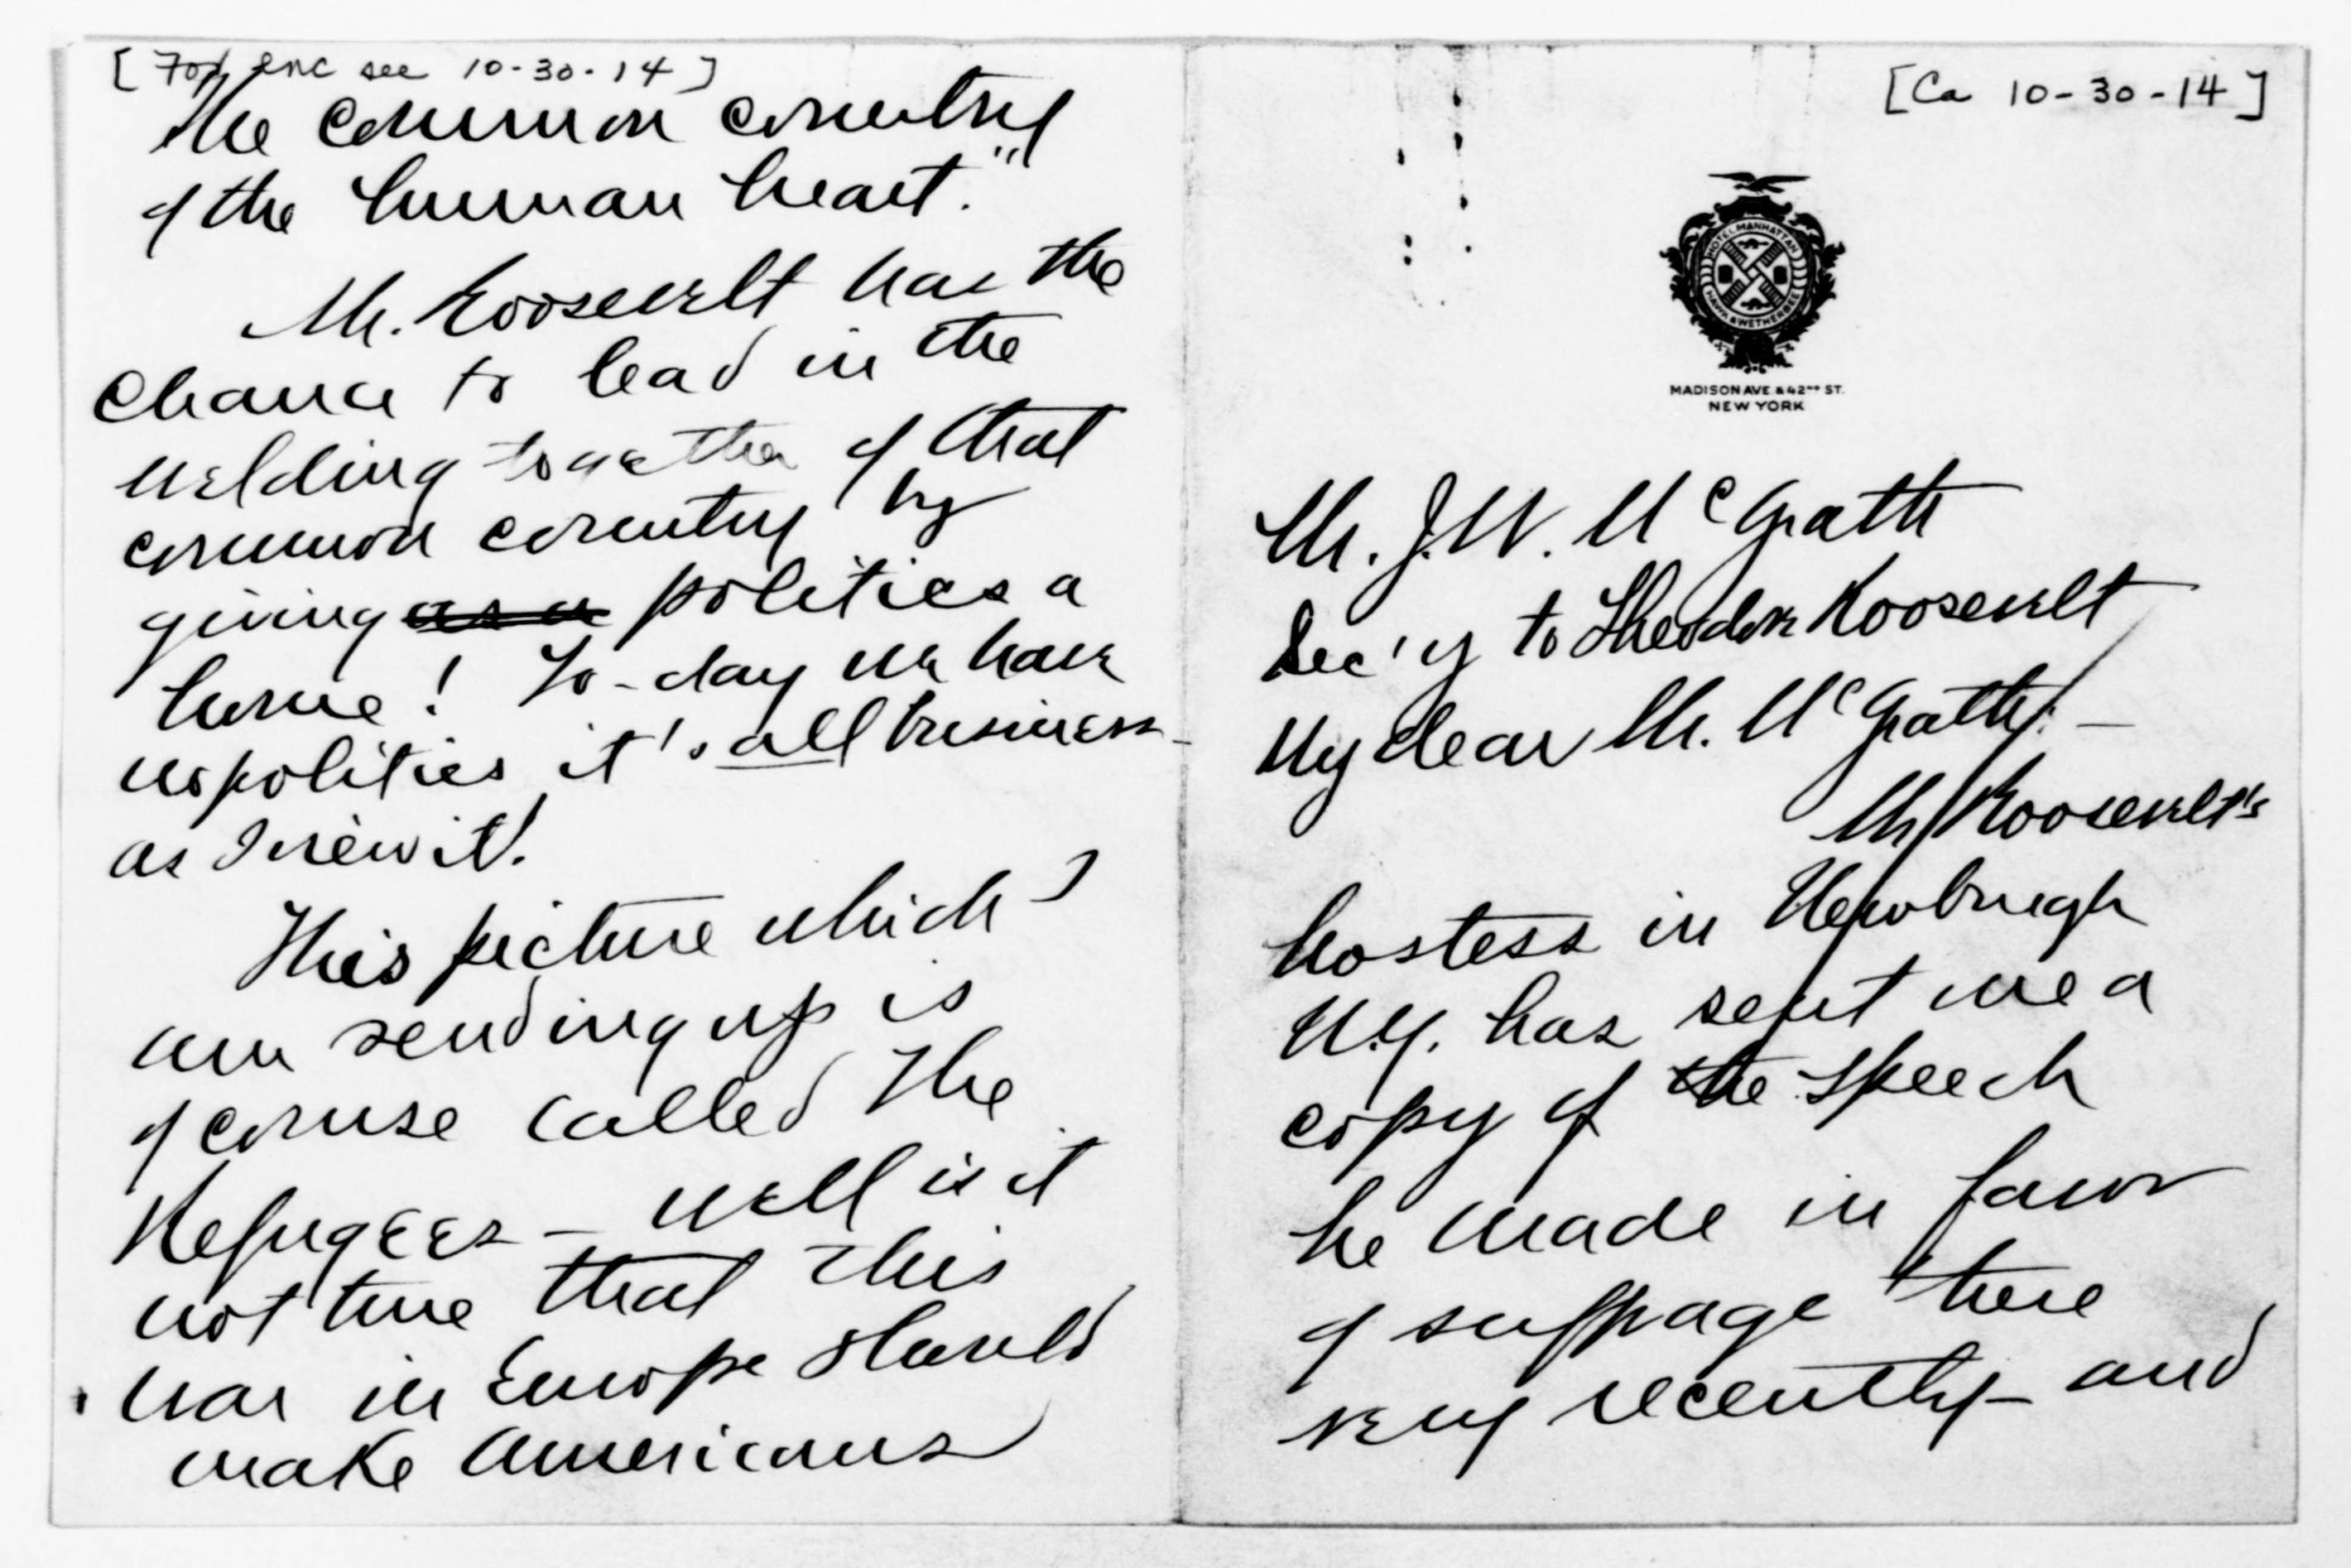 [For enc see 10-30-14]
the common country
of the human heart."
Mr. Roosevelt has the
chance to lead in the
welding together of that
common country by
giving as a politics a
home! To-day we have
no politics it's all business
as I view it!
This picture which I
am sending up is
of course called The
Refugees – well is it
not true that this
war in Europe should
make Americans
[Ca 10-30-14]
HOTEL MANHATTAN
HAWK & WETHERBEE
MADISON AVE. & 42ND ST.
NEW YORK
Mr. J.W. McGrath
Sec'y to Theodore Roosevelt
My dear Mr. McGrath: –
Mr Roosevelt's
hostess in Newburgh
N.Y. has sent me a
copy of the speech
he made in favor
of suffrage there
very recently – and